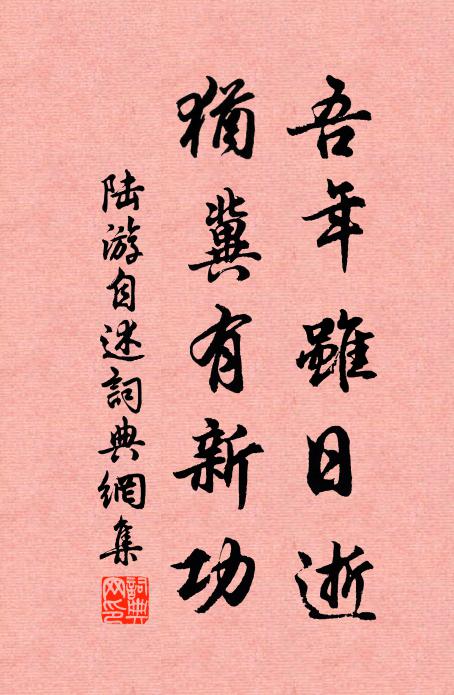 吾年雖日逝
猶冀有新功
陆游自述詞典網集
詞典网印